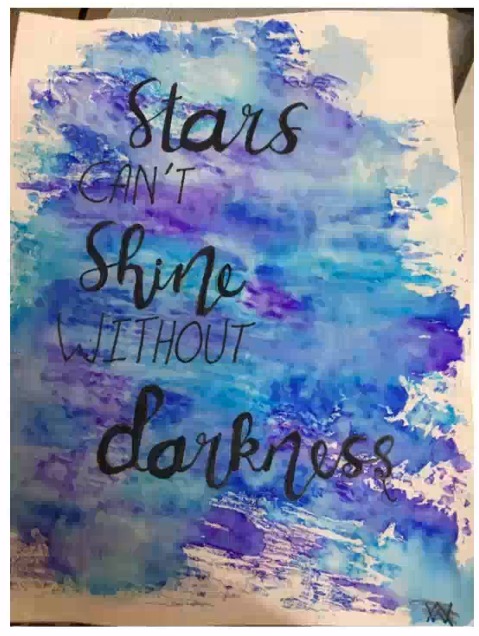 Stars
CAN'T
Shine
WITHOUT
darkness